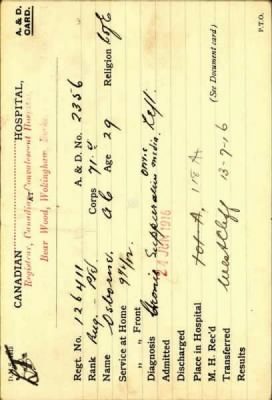 A. & D. CARD.
CANADIAN HOSPITAL,
AT
Registrar, Canadian Convalescent Hospital
Bear Wood, Wokingham,
Regt. No. 126411 A. & D. No. 2356
Rank Pte Corps 71.
Name Osborne. A C Age 29 Religion C of E
Service at Home 9 4/12
" " Front
Diagnosis Chronic Suppurative Otitis Media Left
Admitted 24 JUL 1916
Discharged
Place in Hospital Hot A. 118 A
M. H. Rec'd (See Document card)
Transferred West Cliff 13-9-16
Results
P.T.O.